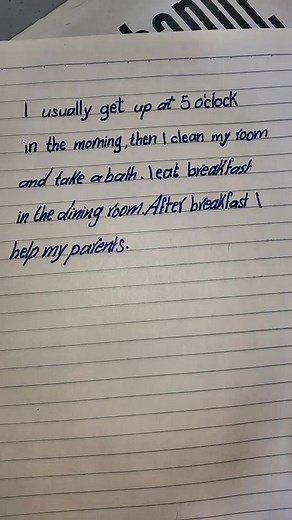 I usually get up at 5 o'clock
in the morning, then I clean my room
and take a bath. I eat breakfast
in the dining room. After breakfast I
help my parents.